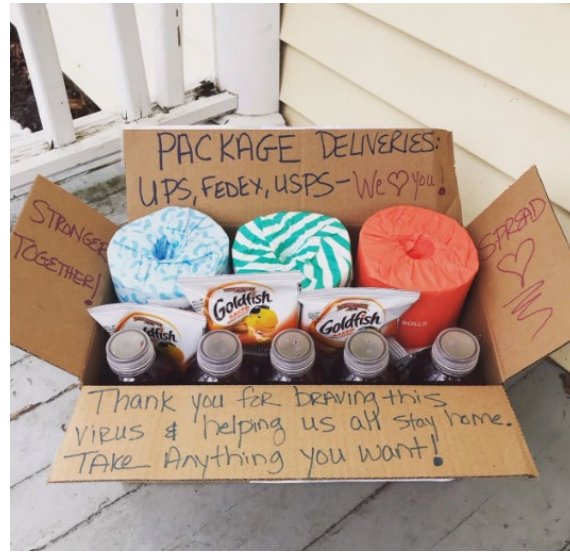 PACKAGE DELIVERIES:
UPS, FEDEX, USPS - We ♡ you!
STRONGER
TOGETHER!
SPREAD
♡
Goldfish
Goldfish
Goldfish
BAKED
Thank you for braving this
virus & helping us all stay home.
TAKE Anything you want!